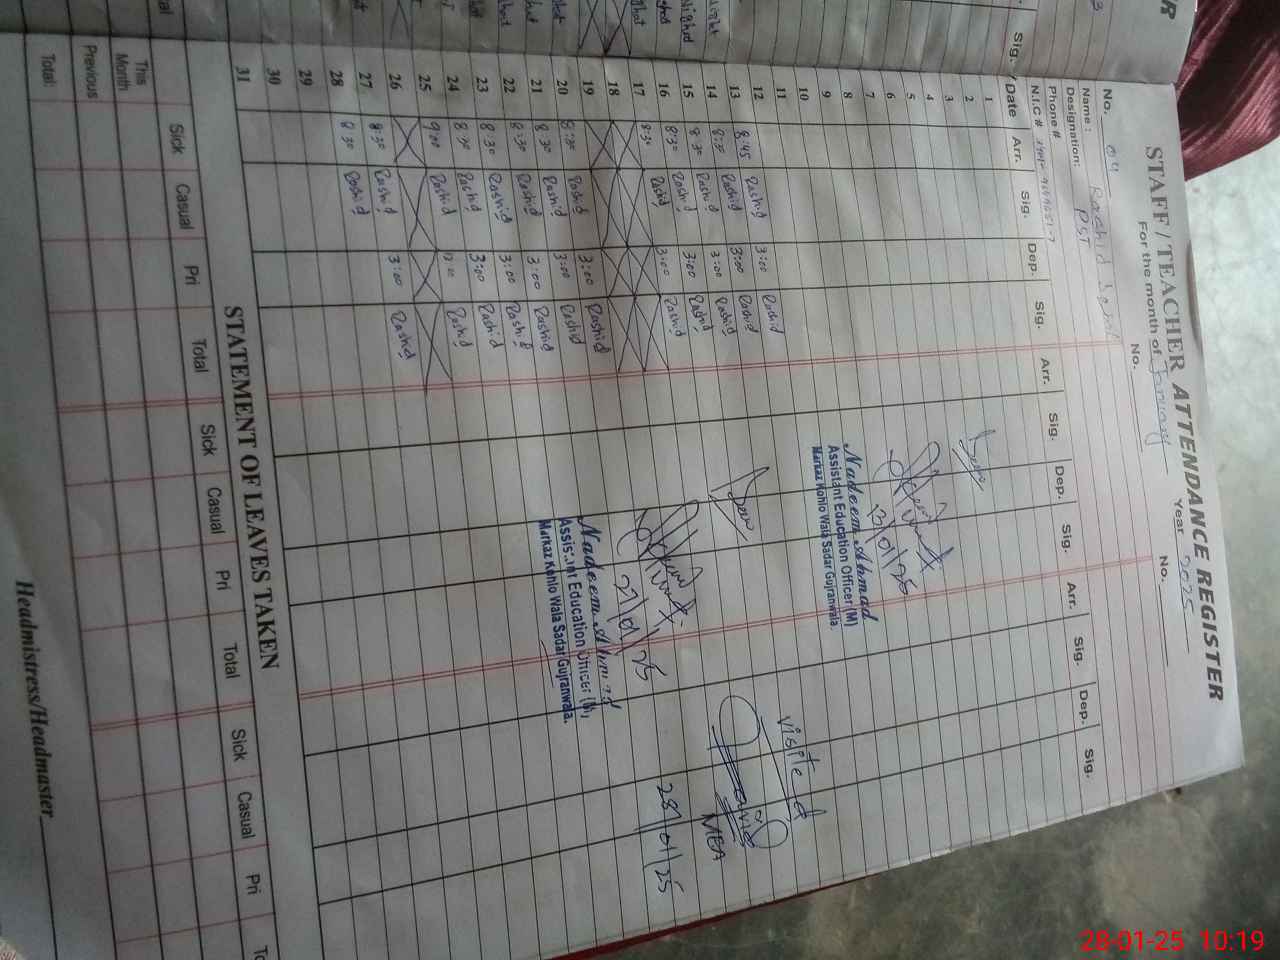 STAFF / TEACHER ATTENDANCE REGISTER
For the month of January Year 2025
No. 04 No. No.
Name : Rashid
Designation: PST
Phone #
N.I.C #
Date Arr. Sig. Dep. Sig. Arr. Sig. Dep. Sig. Arr. Sig. Dep. Sig.
1
2
3
4
5
6
7
8
9
10
11
12 8:45 Rashid 3:00 Rashid
13 8:30 Rashid 3:00 Rashid
14 8:30 Rashid 3:00 Rashid
15 8:30 Rashid 3:00 Rashid
16 8:30 Rashid 3:00 Rashid
17
18
19
20 8:30 Rashid 3:00 Rashid
21 8:30 Rashid 3:00 Rashid
22 8:30 Rashid 3:00 Rashid
23 8:30 Rashid 3:00 Rashid
24 8:30 Rashid 3:00 Rashid
25 Rashid Rashid
26
27 8:30 Rashid 3:00 Rashid
28 8:30 Rashid
29
30
31
13/01/25
Nadeem Ahmad
Assistant Education Officer (M)
Markaz Kohlo Wala Sadar Gujranwala.
27/01/25
Nadeem Ahmad
Assistant Education Officer (M)
Markaz Kohlo Wala Sadar Gujranwala.
visited
MEA
28/01/25
STATEMENT OF LEAVES TAKEN
Sick Casual Pri Total Sick Casual Pri Total Sick Casual Pri
This Month
Previous
Total:
Headmistress/Headmaster
28-01-25 10:19